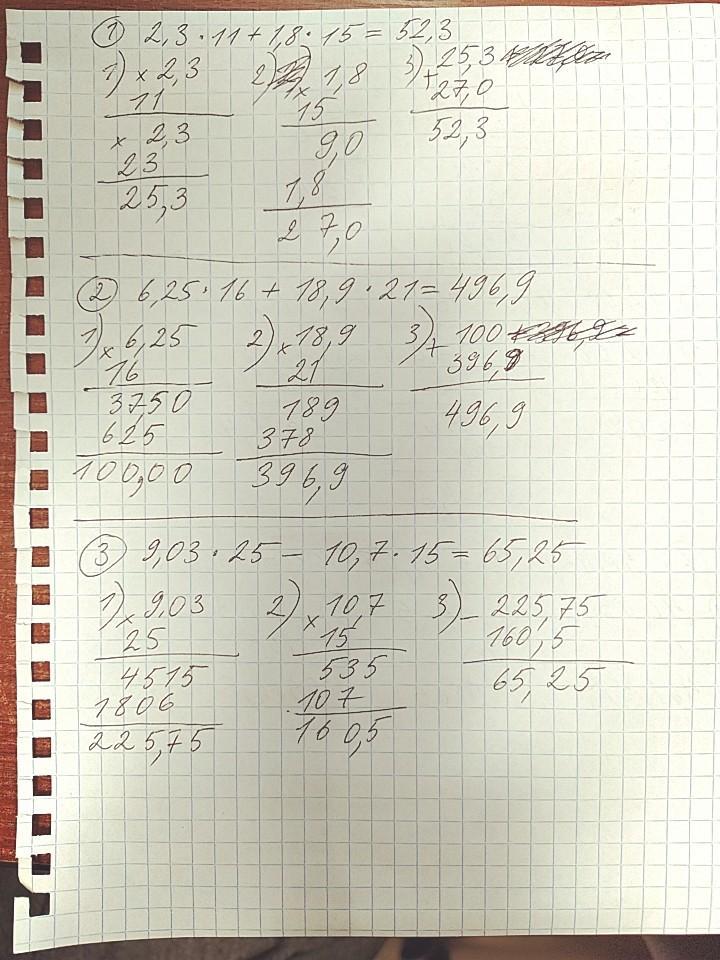 ① 2,3 · 11 + 1,8 · 15 = 52,3
1) × 2,3
11
× 2,3
23
25,3
2) × 1,8
15
9,0
1,8
27,0
3) + 25,3
27,0
52,3
② 6,25 · 16 + 18,9 · 21 = 496,9
1) × 6,25
16
3750
625
100,00
2) × 18,9
21
189
378
396,9
3) + 100
396,9
496,9
③ 9,03 · 25 − 10,7 · 15 = 65,25
1) × 9,03
25
4515
1806
225,75
2) × 10,7
15
535
107
160,5
3) − 225,75
160,5
65,25